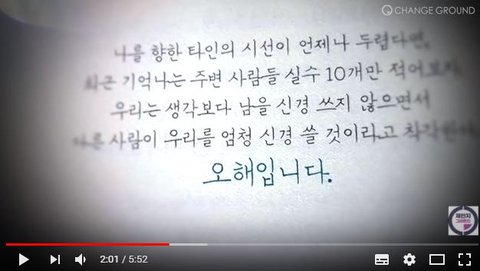 CHANGE GROUND
나를 향한 타인의 시선이 언제나 두렵다면,
최근 기억나는 주변 사람들 실수 10개만 적어보자.
우리는 생각보다 남을 신경 쓰지 않으면서
다른 사람이 우리를 엄청 신경 쓸 것이라고 착각한다.
오해입니다.
체인지
2:01 / 5:52